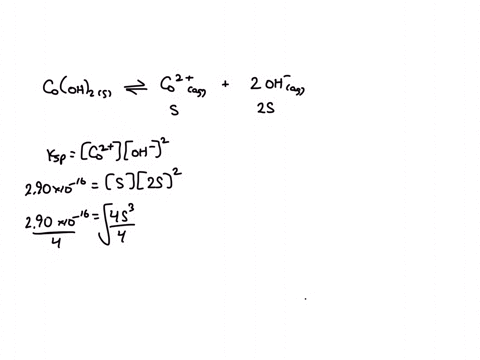 Co(OH)₂(s) ⇌ Co²⁺(aq) + 2 OH⁻(aq)
S 2S
Ksp = [Co²⁺][OH⁻]²
2.90 x10⁻¹⁶ = [S][2S]²
2.90 x10⁻¹⁶/4 = √4S³/4